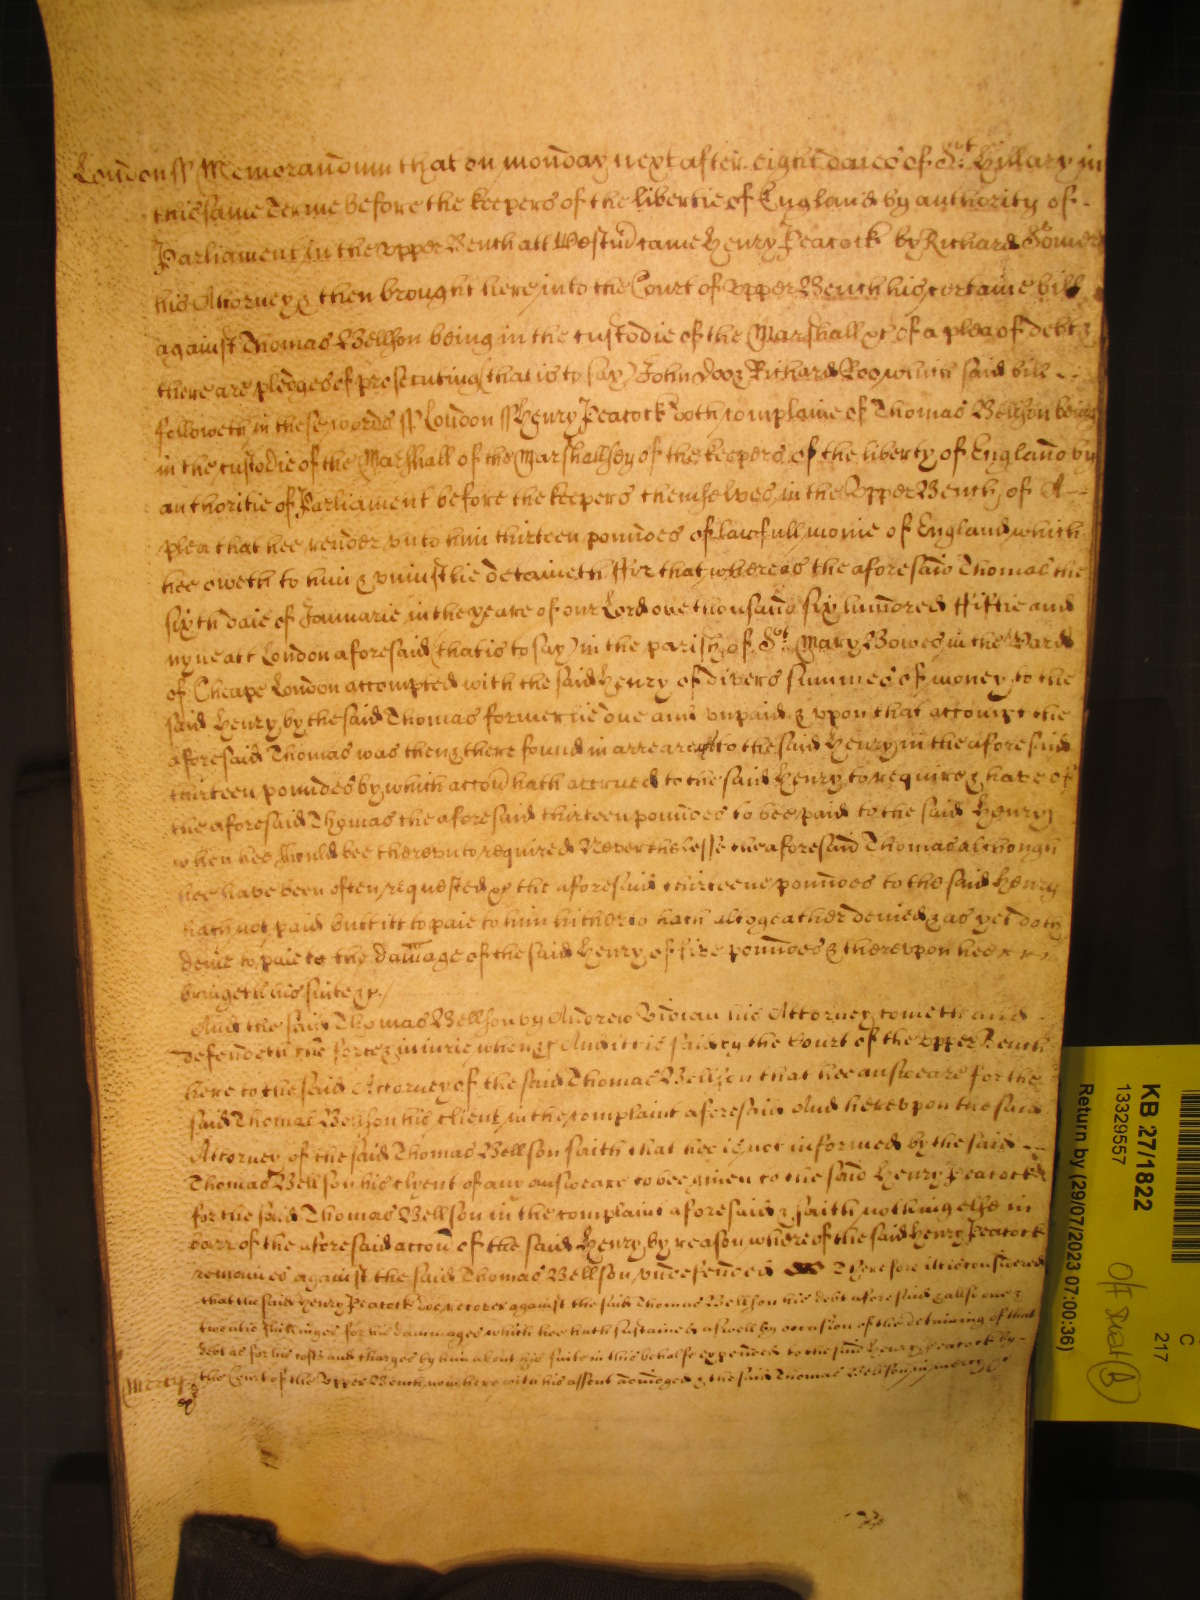 London ss Memorandum that on monday next after eight daies of St. Hillary in
this same Terme before the keepers of the libertie of England by authority of
Parliament in the Upper Bench att Westm came Henry Peacock by Richard
his Attorney & then brought here into the Court of Upper Bench his certaine bill
against Thomas Bellson being in the custodie of the Marshall &c of a plea of debt &
there are pledges of prosecuting (that is to say) John Doo & Richard Roo which said bill
followeth in these words ss London ss Henry Peacock doth complaine of Thomas Bellson being
in the custodie of the Marshall of the Marshallsey of the keepers of the liberty of England by
authoritie of Parliament before the keepers themselves in the Upper Bench of A
plea that hee render unto him thirteen poundes of lawfull monie of England which
hee oweth to him & uniustlie detaineth ffor that whereas the aforesaid Thomas the
sixth daie of Januarie in the yeare of our Lord one thousand six hundred fiftie and
nyne att London aforesaid (that is to say) in the parish of St. Mary Bowes in the Ward
of Cheape London accompted with the said Henry of divers summes of money to the
said Henry by the said Thomas formerlie due and unpaid & upon that accompt the
aforesaid Thomas was then & there found in arreares to the said Henry in the aforesaid
thirteen poundes by which accon hath accrued to the said Henry to require & have of
the aforesaid Thomas the aforesaid thirteen poundes to bee paid to the said Henry
when hee should bee thereunto required Neverthelesse the aforesaid Thomas although
hee have been often requested &c the aforesaid thirteene poundes to the said Henry
hath not paid butt itt to paie to him hitherto hath altogeather denied & as yet doth
denie to paie to the damage of the said Henry of five poundes & thereupon hee
bringeth his suite &c./
And the said Thomas Bellson by Andrew Vidian his Attorney cometh and
defendeth the force & iniurie when &c And itt is said by the Court of the Upper Bench
here to the said Attorney of the said Thomas Bellson that hee answeare for the
said Thomas Bellson his client in the complaint aforesaid And hereupon the said
Attorney of the said Thomas Bellson saith that hee is not informed by the said
Thomas Bellson his clyent of any answeare to bee given to the said Henry Peacock
for the said Thomas Bellson in the complaint aforesaid & saith nothing else in
barr of the aforesaid accon of the said Henry by reason whereof the said Henry Peacock
remaines against the said Thomas Bellson undefended Therefore itt is considered
that the said Henry Peacock doe recover against the said Thomas Bellson his debt aforesaid & allso one &
twentie shillinges for his dammages which hee hath sustained aswell by occasion of the detaining of that
debt as for his costs and charges by him about his suite in this behalfe expended to the said Henry Peacock by
Mercy the Court of the Upper Bench now here with his assent adiudged & the said Thomas Bellson in mercy &c
KB 27/1822
13329557
Return by (29/07/2023 07:00:36)
C
217